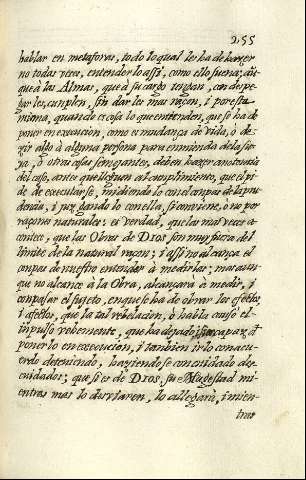 255
hablar en metaforas, todo lo qual les ha de hazer
no todas vezes, entenderlo assi, como ello suena; aũ
que à las Almas, que à su cargo tengan, con despe
garles, cumplen, sin darles mas raçon, i por esta
misma, quando es cosa lo que entienden, que se ha de
poner en execucion, como es mudança de vida, ò de-
zir algo à alguna persona para enmienda de la su-
ya, ò otras cosas semejantes, deben hazer anotomia
del caso, antes que lleguen al cumplimiento, que el pi-
de de executarse, midiendolo con el compas de la pru-
dencia, i juzgando lo con ella, si conviene, ò no por
raçones naturales: es verdad, que las mas vezes a-
contece, que las Obras de DIOS son muy fuera del
limite de la natural raçon; i assi no alcança el
compas de nuestro entender à medirlas; mas aun-
que no alcance à la Obra, alcançarà à medir, i
compasar el sujeto, en que se ha de obrar los efetos,
i afectos, que la tal rebelacion, ò habla causò el
inpulso vehemente, que ha dejado incapaz, de
ponerlo en execucion, i tambien irlo con acu-
erdo deteniendo, haziendose con cuidado des-
cuidados; que si es de DIOS, su Magestad mi-
entras mas lo desviaren, lo allegarà, i mien-
tras